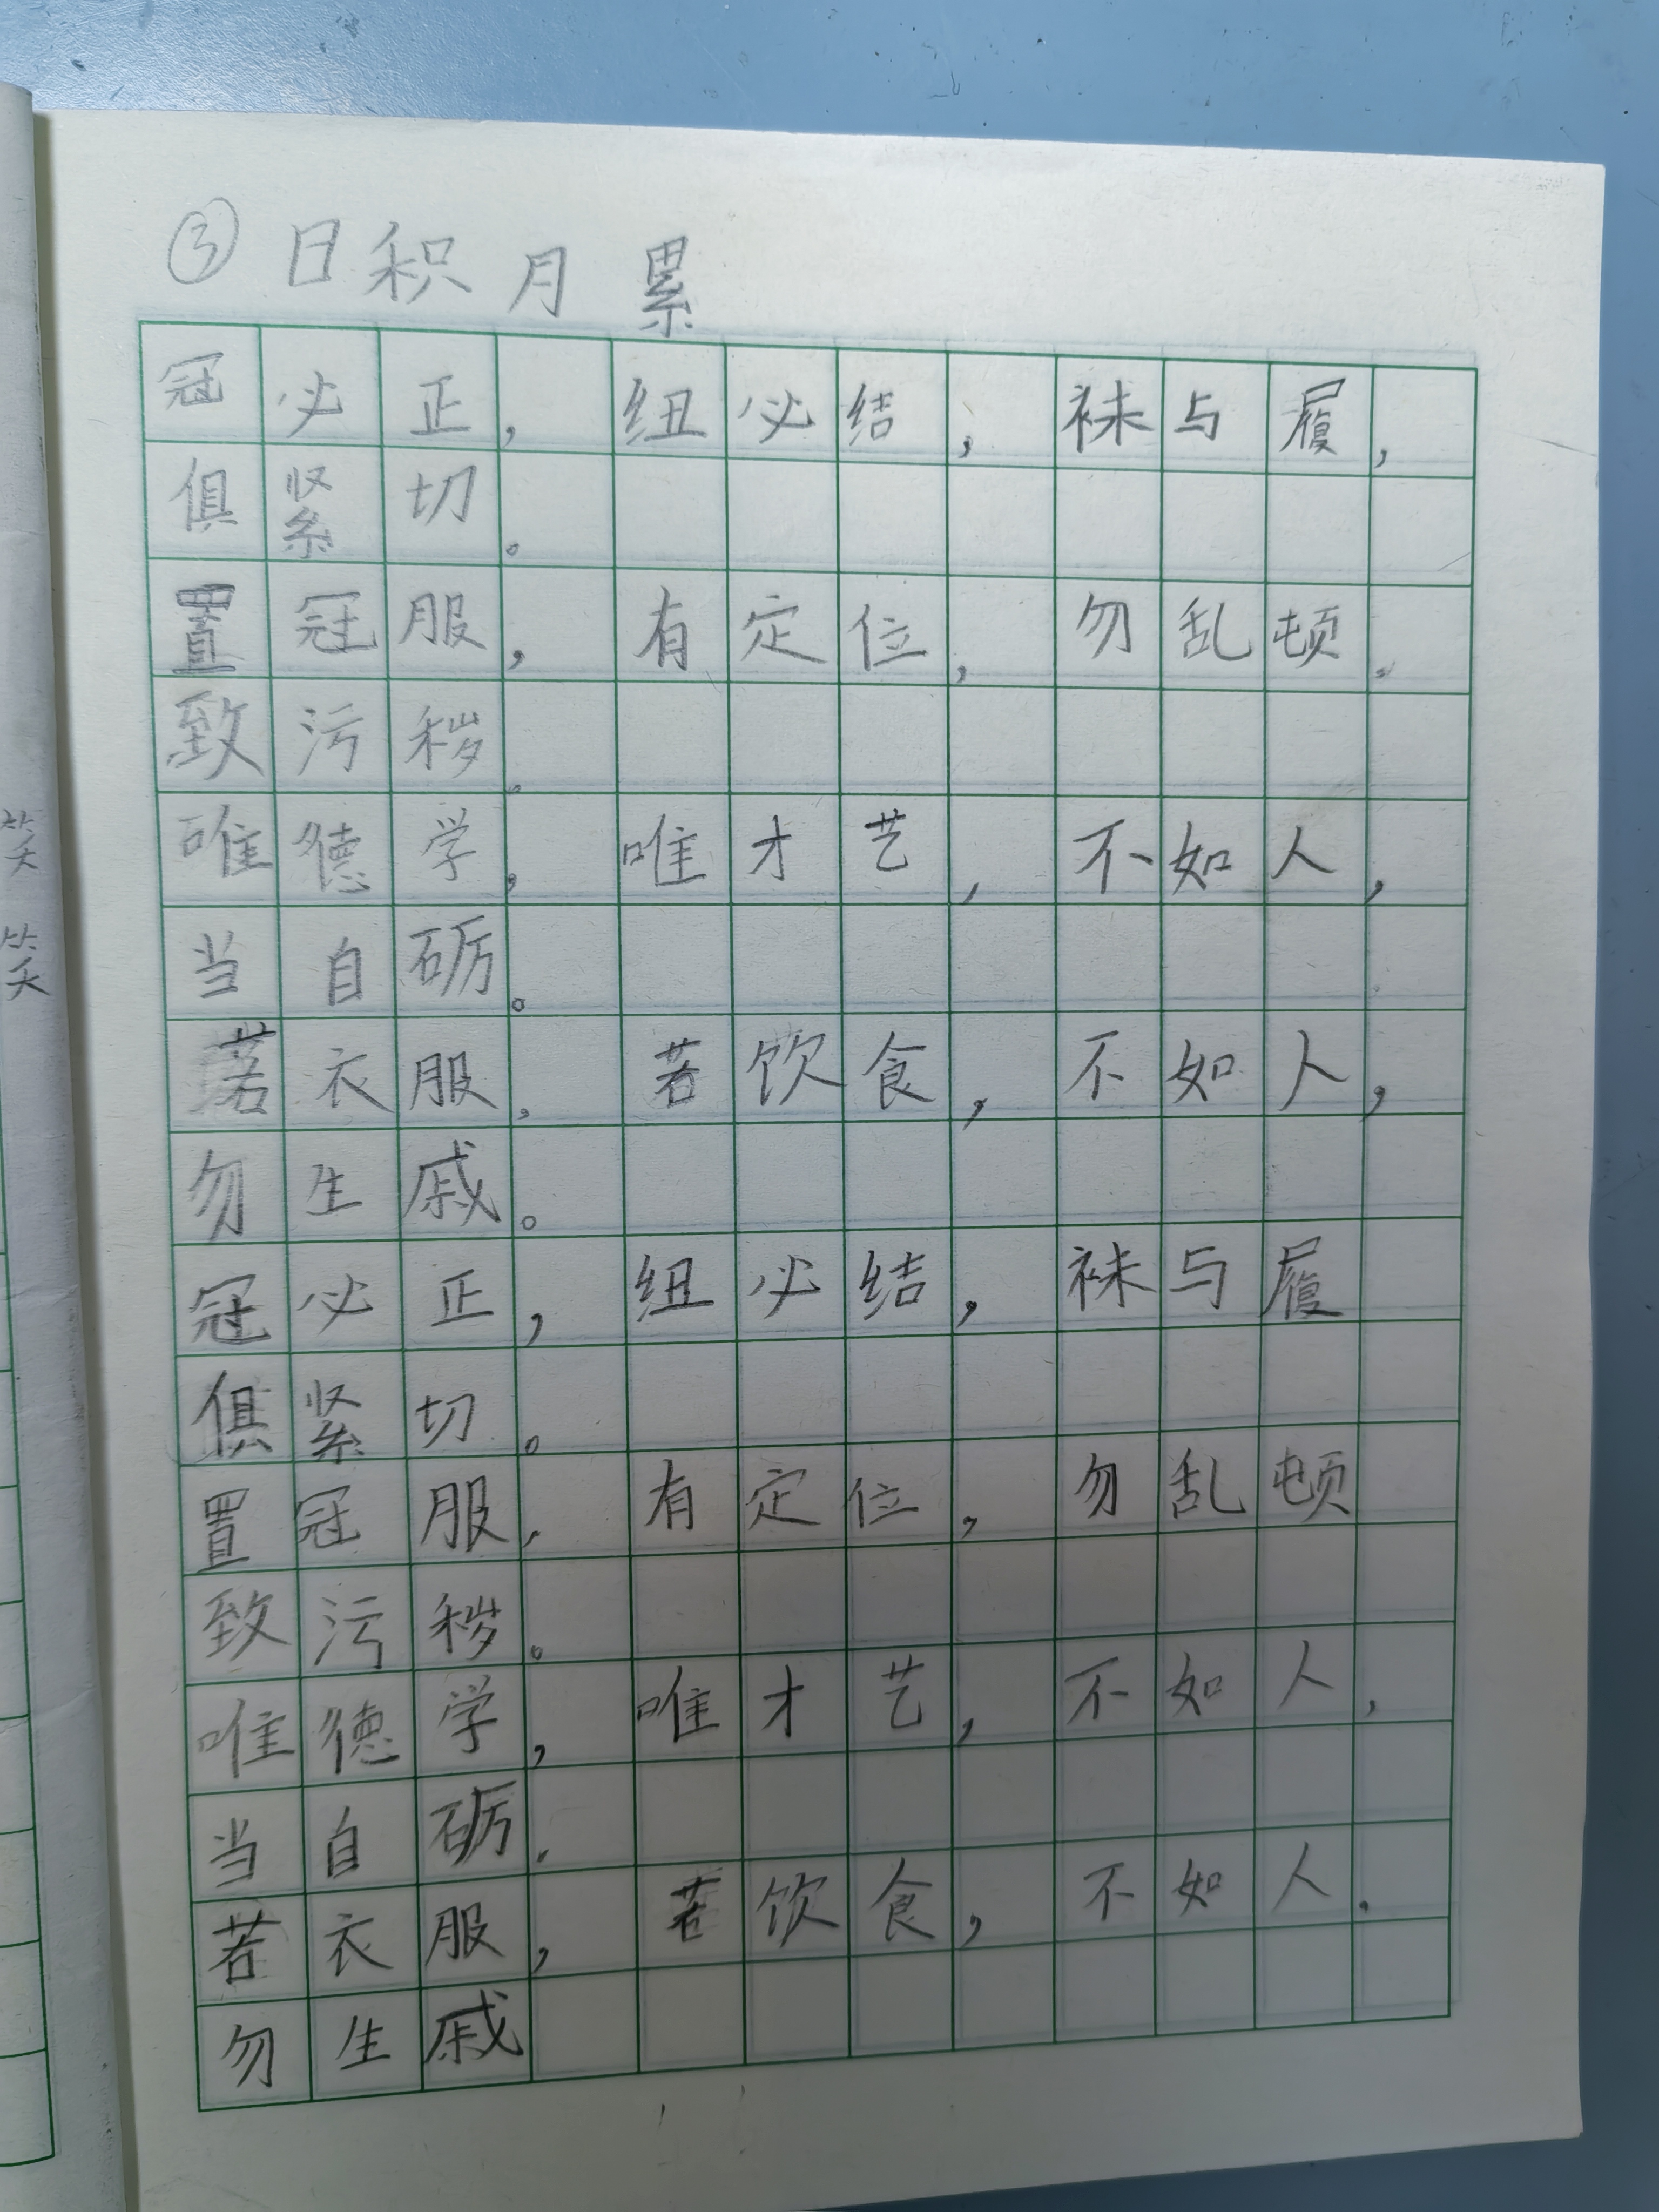 ③日积月累
冠必正，纽必结，袜与履，
俱紧切。
置冠服，有定位，勿乱顿。
致污秽。
唯德学，唯才艺，不如人，
当自砺。
若衣服，若饮食，不如人，
勿生戚。
冠必正，纽必结，袜与履
俱紧切。
置冠服，有定位，勿乱顿
致污秽。
唯德学，唯才艺，不如人，
当自砺.
若衣服，若饮食，不如人.
勿生戚
笑
笑